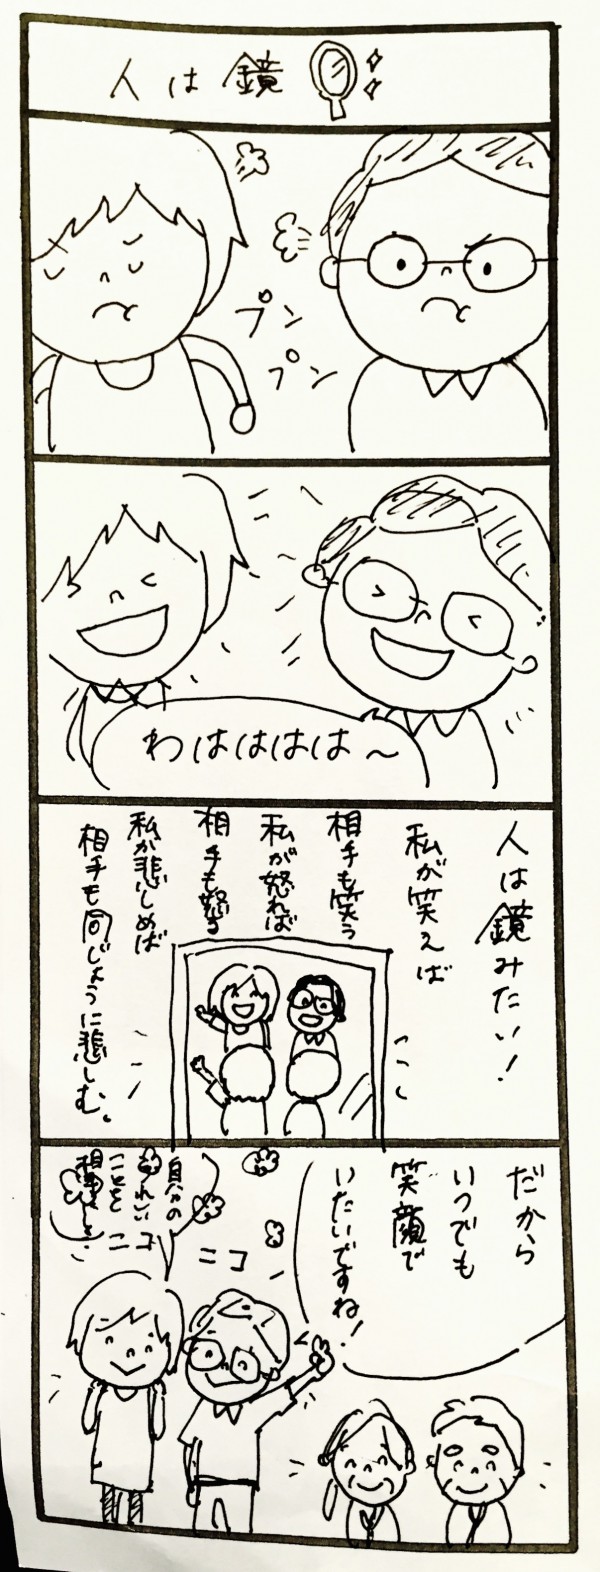 人は鏡
プン
プン
わはははは〜
人は鏡みたい!
私が笑えば
相手も笑う
私が怒れば
相手も怒る
私が悲しめば
相手も同じように悲しむ。
だから
いつでも
笑顔で
いたいですね!
ニコ
ニコ
自分の
うれしい
ことを